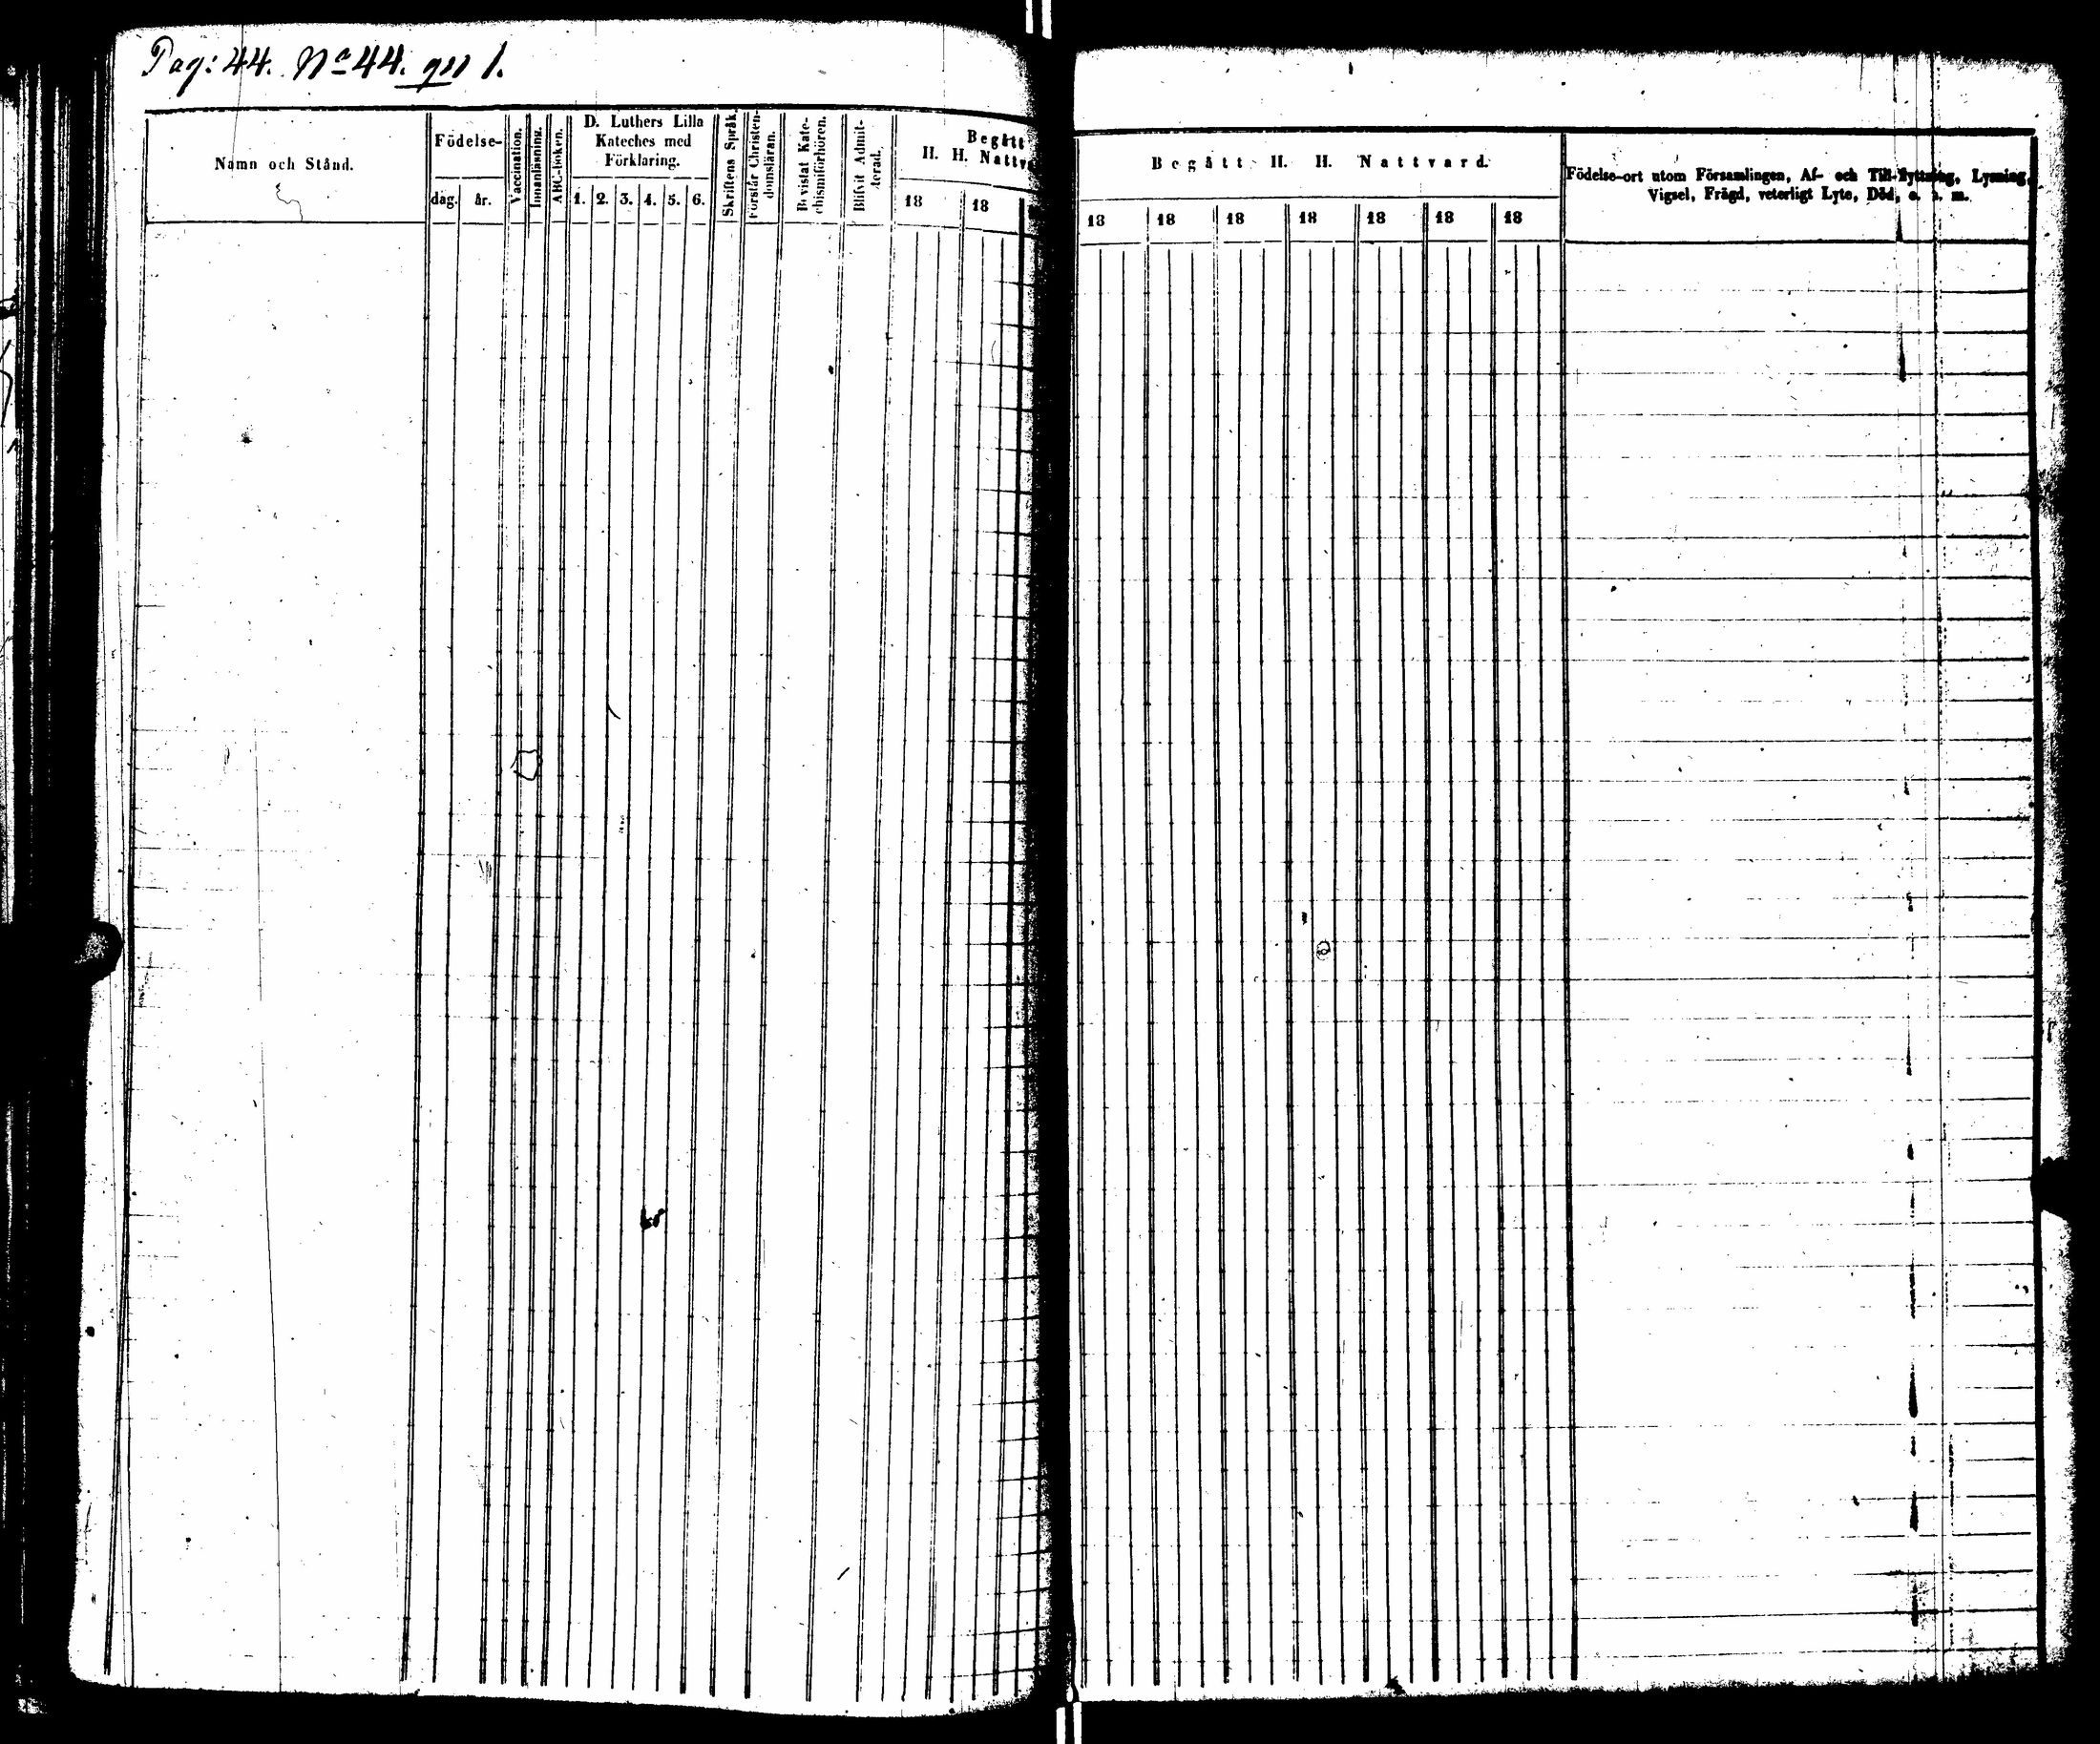 Pag: 44. No 44. qu 1.
Namn och Stånd.
Födelse-
dag. år.
Vaccination.
Innanläsning.
ABC-boken.
D. Luthers Lilla
Kateches med
Förklaring.
1. 2. 3. 4. 5. 6.
Skriftens Språk.
Förstår Christen-
domsläran.
Bevistat Kate-
chismiförhören.
Blifvit Admit-
terad.
Begått
H. H. Nattv
18 18
Begått H. H. Nattvard.
18 18 18 18 18 18 18
Födelse-ort utom Församlingen, Af- och Till-flyttning, Lysning,
Vigsel, Frägd, veterligt Lyte, Död, o. s. m.